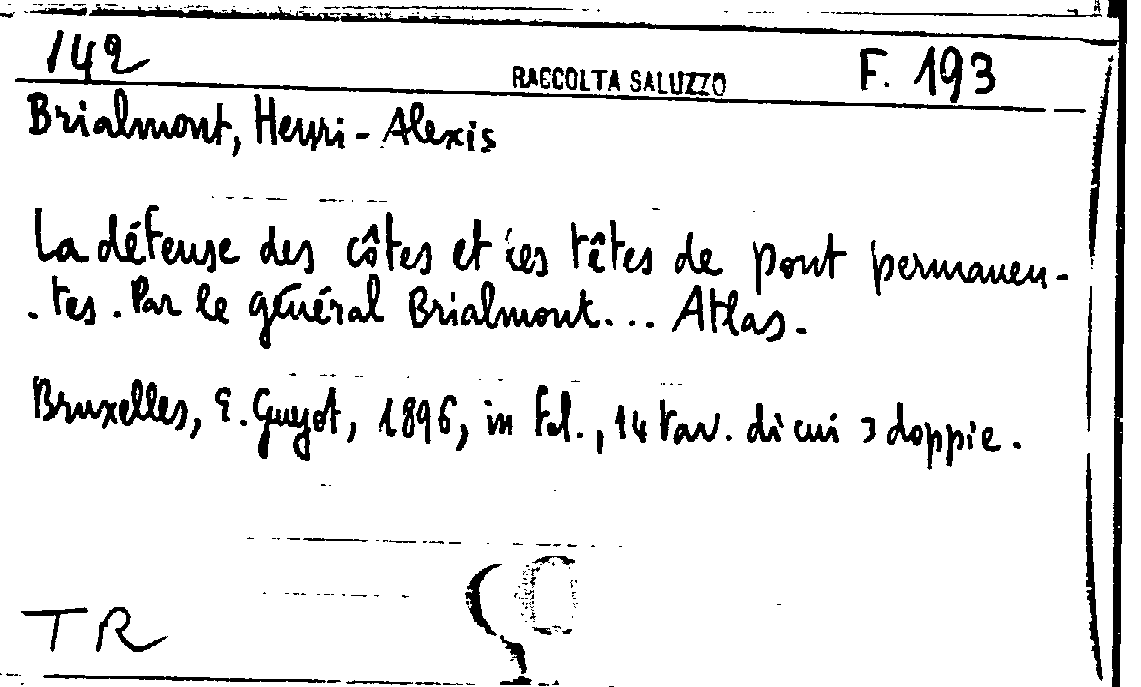 142 RACCOLTA SALUZZO F. 193
Brialmont, Henri-Alexis
La défense des côtes et les têtes de pont permanen-
-tes. Par le général Brialmont... Atlas.
Bruxelles, E. Guyot, 1896, in fol., 14 tav. di cui 3 doppie.
TR